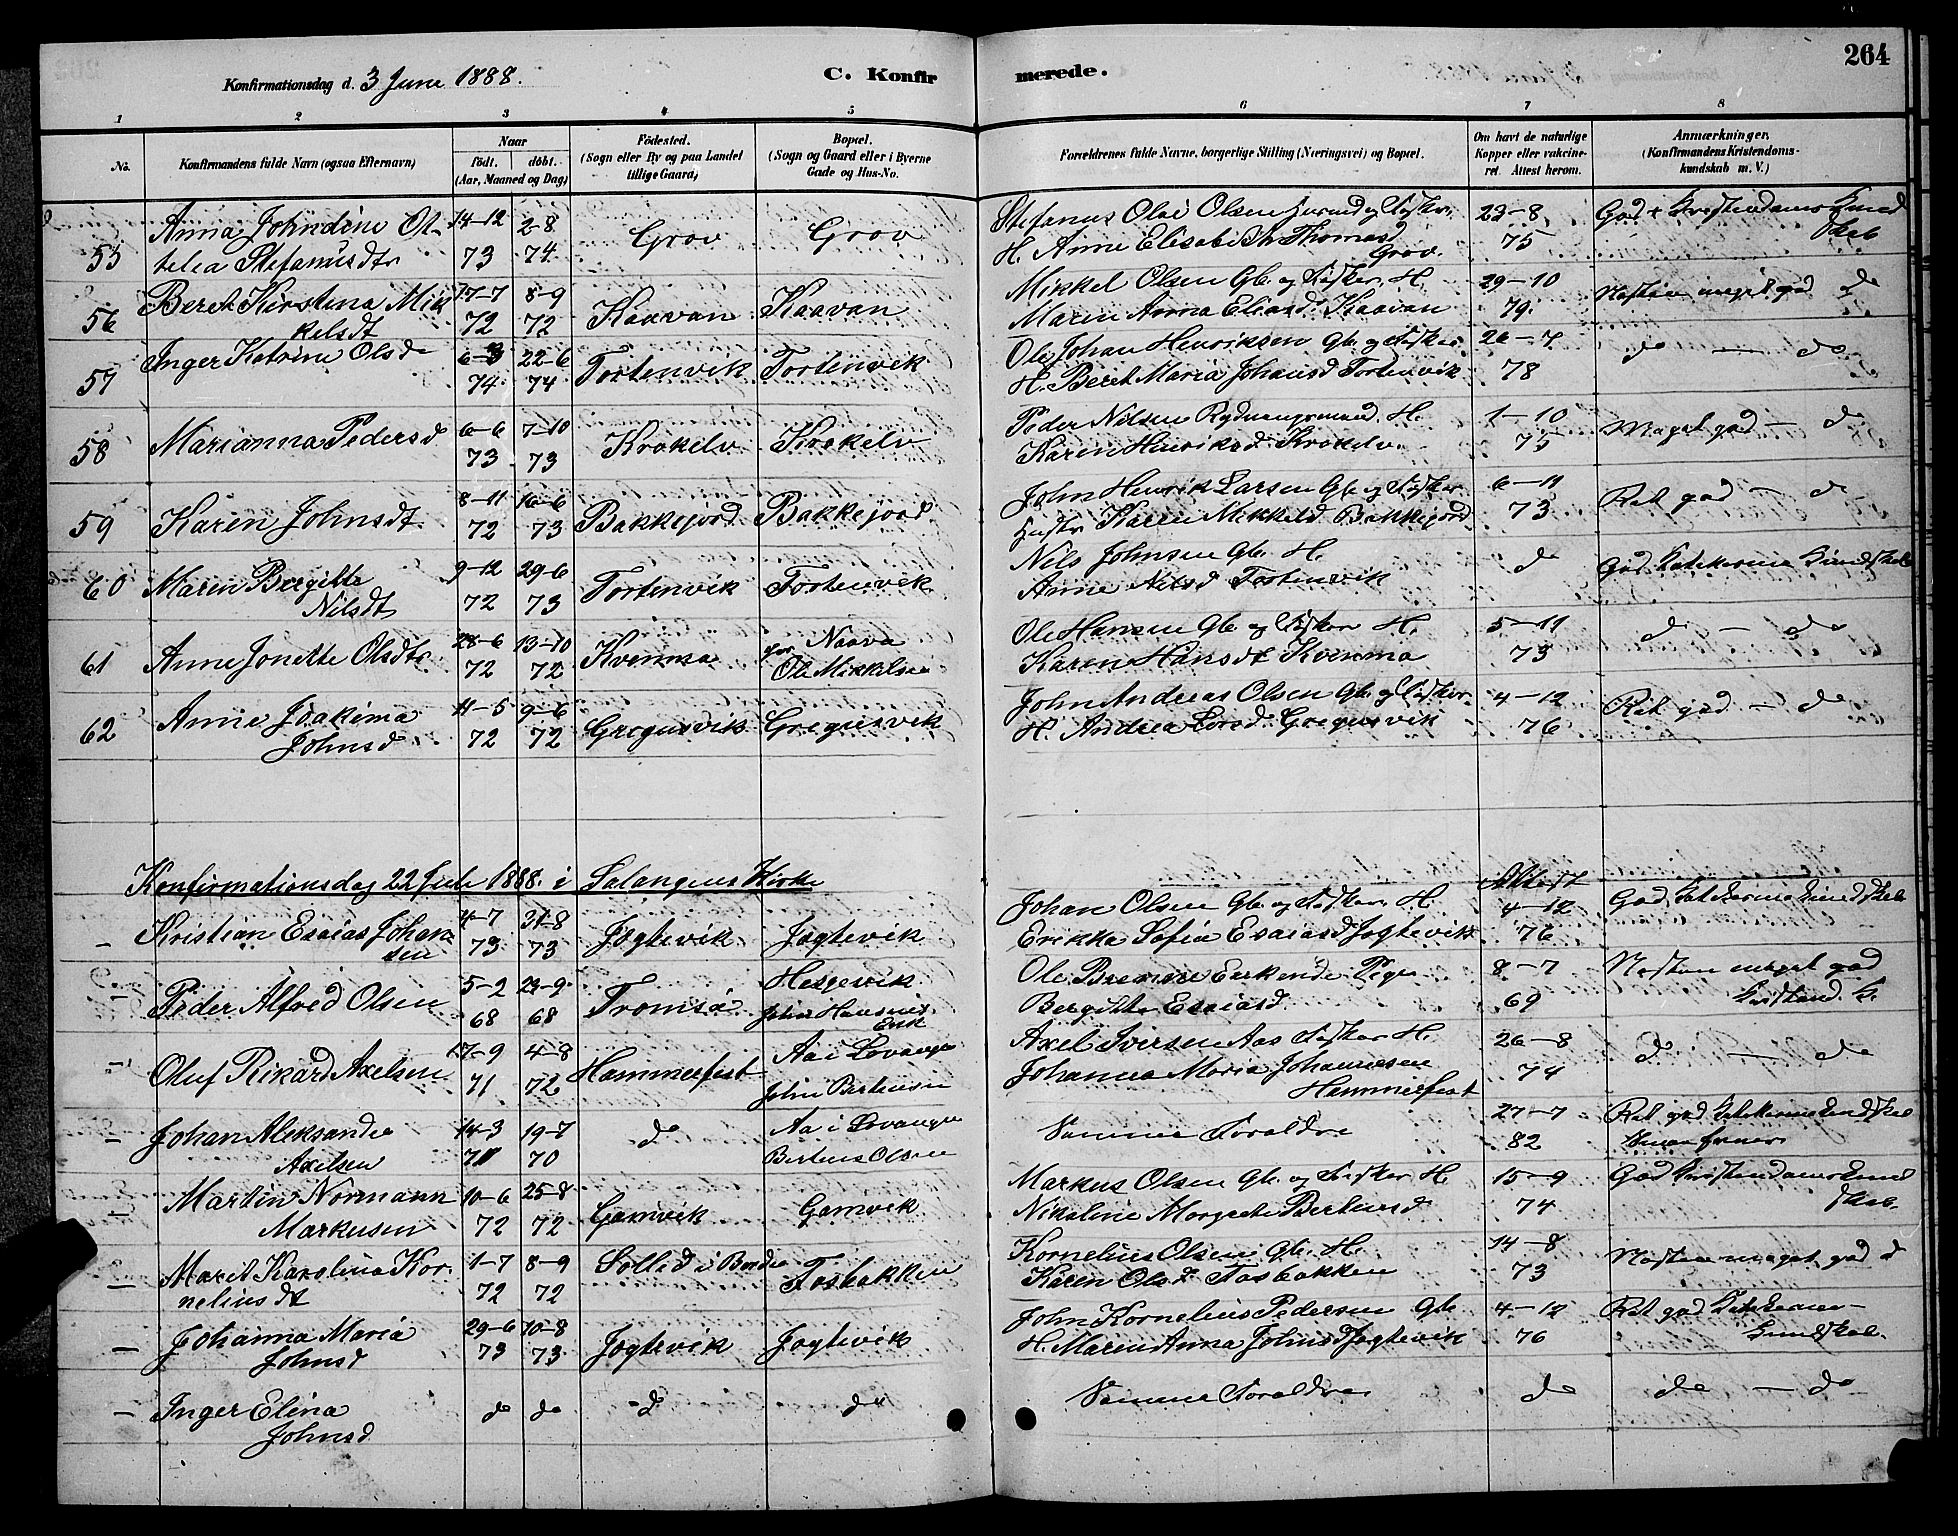 264
Konfirmationsdag d. 3 June 1888.
C. Konfirmerede.
1 2 3 4 5 6 7 8
No.
Konfirmandens fulde Navn (ogsaa Efternavn)
Naar
födt. döbt.
(Aar, Maaned og Dag)
Födested.
(Sogn eller By og paa Landet
tillige Gaard)
Bopæl.
(Sogn og Gaard eller i Byerne
Gade og Hus-No.
Forældrenes fulde Navne, borgerlige Stilling (Næringsvei) og Bopæl.
Om havt de naturlige
Kopper eller vakcine-
ret. Attest herom.
Anmærkninger,
(Konfirmandens Kristendoms-
kundskab m. V.)
55 Anna Johndine Ot- 14-12 2-8 Grov Grov Stefanus Olai Olsen og Fisker. 23-8 God Kristendoms Kund
telea Stefanusdtr 73 74 H. Anne Elisabeth Thomasd Grov. 75 skab
56 Beret Kirstina Mik 17-7 8-9 Kaavan Kaavan Mikkel Olsen Gb. og Fisker. H. 29-10 Næsten meget god do
kelsdt 72 72 Maren Anna Eliasd. Kaavan 79.
57 Inger Katrine Olsd 6-3 22-6 Tortenvik Tortenvik Ole Johan Henriksen Gb. og Fisker. 26-7 do — do
74 74 H. Beret Maria Johansd Tortenvik 78
58 Marianna Pedersd 6-6 7-10 Krokelv Krokelv Peder Nilsen Rydningsmand. H. 1-10 Meget god — do
73. 73 Karen Henriksd. Krokelv. 75
59 Karen Johnsdt. 8-11 16-6 Bakkejord Bakkejord John Henrik Larsen Gb. og Fisker 6-11 Ret god — do
72 73 Hustr Karen Mikkelsd Bakkejord 73
60 Maren Bergitte 9-12 29-6 Tortenvik Tortenvik Nils Johnsen Gb. H. do God Katekisme Kundskab
Nilsdt 72 73 Anne Nilsd Tortenvik
61 Anne Jonette Olsdtr 28-6 13-10 Kvenmo Naava Ole Hansen Gb. og Fisker H. 5-11 do — do
72 72 Ole Mikkelsen Karen Hansdt Kvenmo 73
62 Anne Joakima 11-5 9-6 Gregusvik Gregusvik John Andreas Olsen Gb. og Fisker. 4-12 Ret god — do
Johnsd 72 72 H. Andrea Larsd. Gregusvik 76
Konfirmationsdag 22 Juli 1888. i Salangens Kirke Attest
- Kristian Esaias Johan 4-7 31-8 Jogtevik Jogtevik Johan Olsen Gb. og Fisker. H. 4-12 God Katekisme Kundskab
sen 73 73 Erikka Sofia Esaiasd Jogtevik 76
- Peder Alfred Olsen 5-2 29-9 Tromsø Hesjevik Ole Enkemand Pige 8-7 Næsten meget god
68 68 John Hansens Enk Bergitte Esaiasd. 69 Kristend. K.
- Oluf Rikard Axelsen 17-9 4-8 Hammerfest Aa i Lovangen Axel Iversen Aas Fisker H. 26-8 do — do
71 72 John Bertinsen Johanna Maria Johannesen 74
Hammerfest
- Johan Aleksander 14-3 19-7 do Aa i Lovangen Samme Foraldre 27-7 Ret god Katekisme Kundskab
Axelsen 70 70 Bertens Olsen 82
- Martin Normann 10-6 25-8 Gamvik Gamvik Markus Olsen Gb. og Fisker H. 15-9 God Kristendoms Kund
Markusen 72 72 Nikoline Margrete Bertensd 74 skab.
- Maret Karolina Kor 1-7 8-9 Solled i Fosbakken Kornelius Olsen Gb. H. 14-8 Næsten meget god d
neliusdt 72 72 Karen Olsd. Fosbakken 73
- Johanna Maria 29-6 10-8 Jogtevik Jogtevik John Kornelius Pedersen Gb. 4-12 Ret god Katekisme-
Johnsd 73 73 H. Maren Anna Johnsd Jogtevik 76 Kundskab.
- Inger Elina do do d do Samme Foraldre do do — do
Johnsd